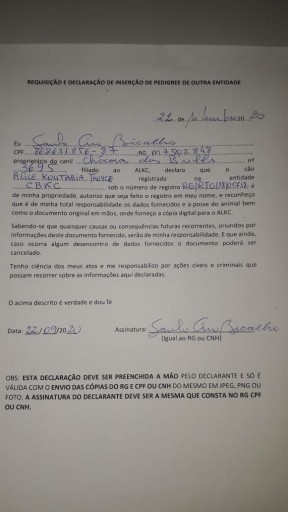 REQUISIÇÃO E DECLARAÇÃO DE INSERÇÃO DE PEDIGREE DE OUTRA ENTIDADE
22 de setembro 20
Eu Saulo Bicalho
CPF RG M7502848
proprietário do canil Chácara dos Bulls nº
3695 filiado ao ALKC, declaro que o cão
registrado na entidade
CBKC sob o número de registro é
de minha propriedade, autorizo que seja feito o registro em meu nome, e reconheço
que é de minha total responsabilidade os dados fornecidos e a posse do animal bem
como o documento original em mãos, onde forneço a cópia digital para o ALKC.
Sabendo-se que quaisquer causas ou consequências futuras recorrentes, oriundos por
informações deste documento fornecido, serão de minha responsabilidade. E que ainda,
caso ocorra algum desencontro de dados fornecidos o documento poderá ser
cancelado.
Tenho ciência dos meus atos e me responsabilizo por ações cíveis e criminais que
possam recorrer sobre as informações aqui declaradas.
O acima descrito é verdade e dou fé
Data: 22/09/2020 Assinatura: Saulo Bicalho
(Igual ao RG ou CNH)
OBS: ESTA DECLARAÇÃO DEVE SER PREENCHIDA A MÃO PELO DECLARANTE E SÓ É
VÁLIDA COM O ENVIO DAS CÓPIAS DO RG E CPF OU CNH DO MESMO EM JPEG, PNG OU
FOTO. A ASSINATURA DO DECLARANTE DEVE SER A MESMA QUE CONSTA NO RG CPF
OU CNH.